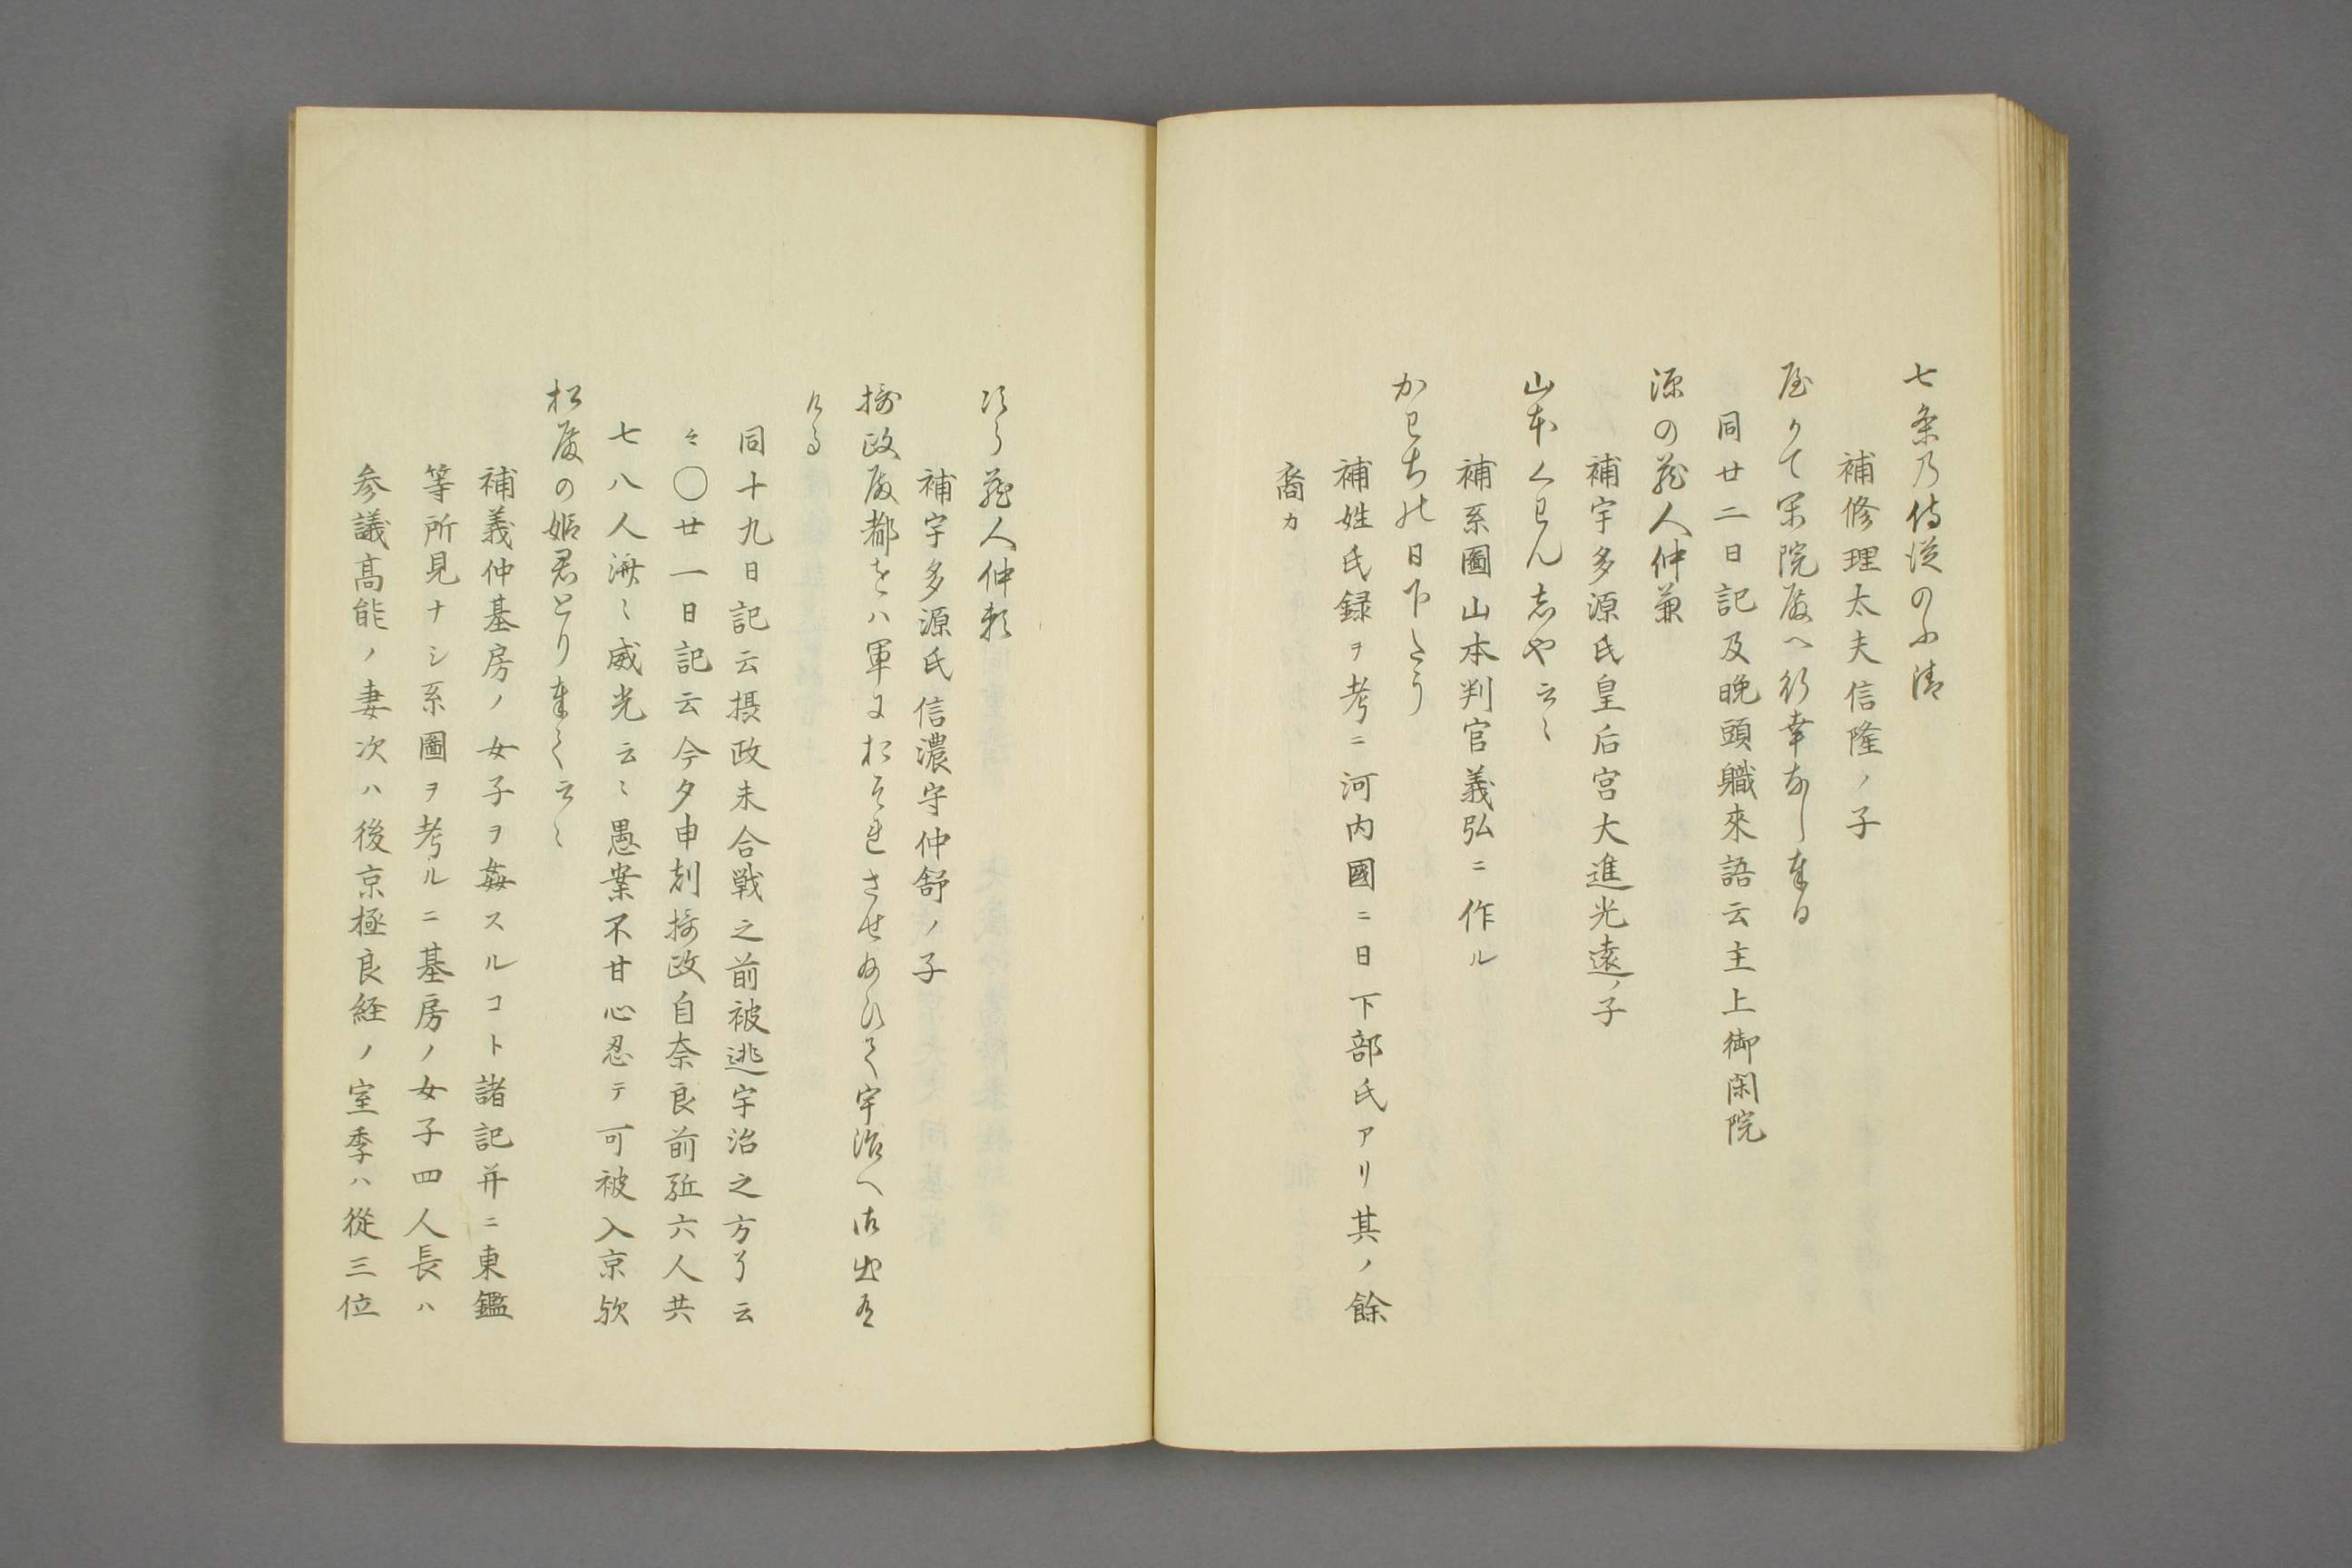 七条乃侍従のふ清
補修理太夫信隆ノ子
やかて閑院殿へ行幸なし奉る
同廿二日記及晩頭職来語云主上御閑院
源の蔵人仲兼
補宇多源氏皇后宮大進光遠ノ子
山本くわん志や云〻
補系圖山本判官義弘ニ作ル
かわち乃日下たう
補姓氏録ヲ考ニ河内國ニ日下部氏アリ其ノ餘
裔カ
次ら蔵人仲頼
補宇多源氏信濃守仲舒ノ子
摂政殿都をハ軍におそれさせ給ひて宇治へ御出有
ける
同十九日記云摂政未合戦之前被逃宇治之方了云
々〇廿一日記云今夕申刻摂政自奈良前駈六人共
七八人海〻威光云〻愚案不甘心忍テ可被入京欤
松殿の姫君とり奉て云〻
補義仲基房ノ女子ヲ姦スルコト諸記并ニ東鑑
等所見ナシ系圖ヲ考ルニ基房ノ女子四人長ハ
参議高能ノ妻次ハ後京極良経ノ室季ハ從三位